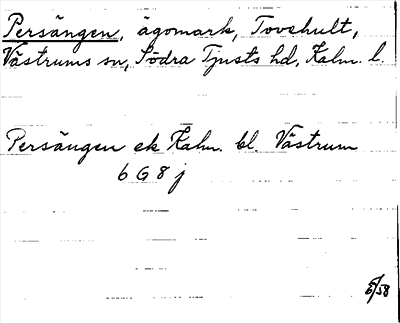 Persängen, ägomark, Tovehult,
Västrums sn, Södra Tjusts hd, Kalm. l.
Persängen ek Kalm. bl. Västrum
6 G 8 j
5/58